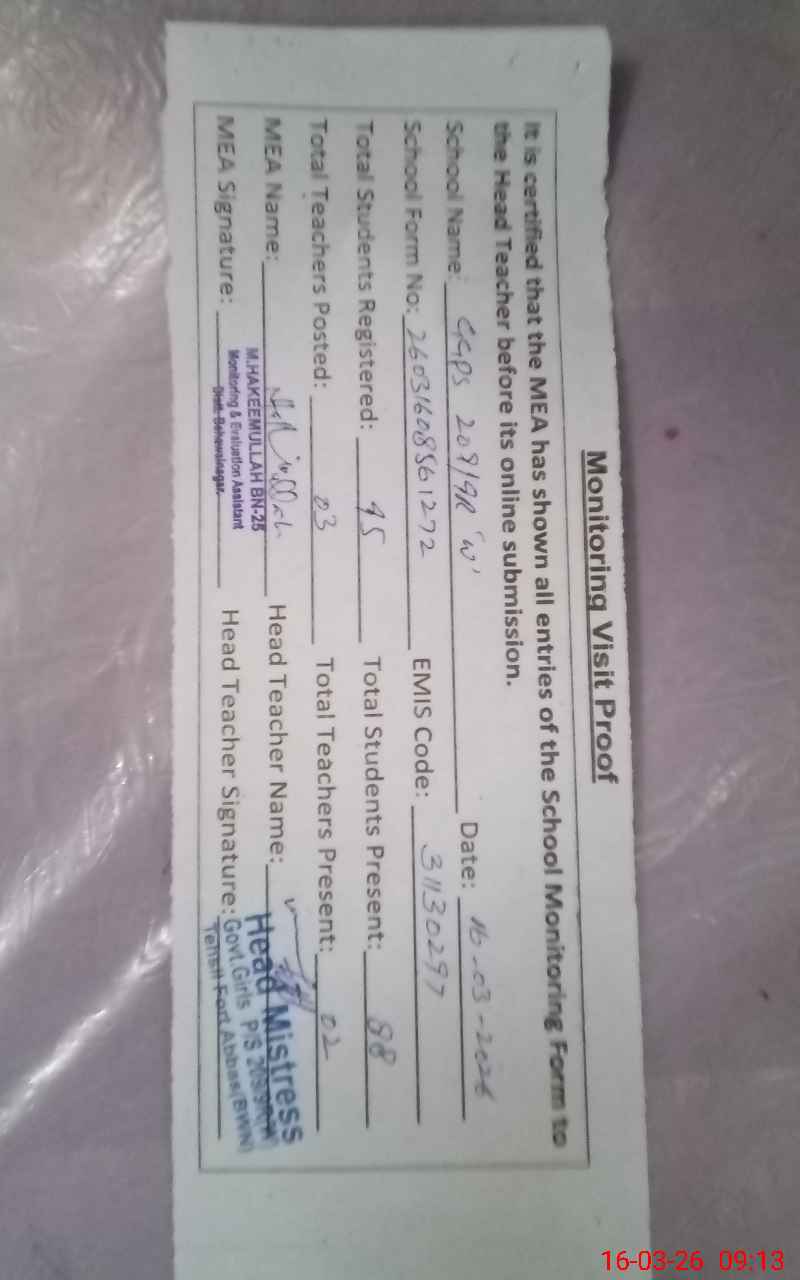 Monitoring Visit Proof
It is certified that the MEA has shown all entries of the School Monitoring Form to
the Head Teacher before its online submission.
School Name: GGPS 209/9R 'W' Date: 16-03-2026
School Form No: 26031608561272 EMIS Code: 31130297
Total Students Registered: 95 Total Students Present: 88
Total Teachers Posted: 03 Total Teachers Present: 02
MEA Name: Head Teacher Name:
MEA Signature: Head Teacher Signature:
M.HAKEEMULLAH BN-25
Monitoring & Evaluation Assistant
Distt. Bahawalnagar.
Head Mistress
Govt. Girls P/S 209/9R(W)
Tehsil Fort Abbas (BWN)
16-03-26 09:13